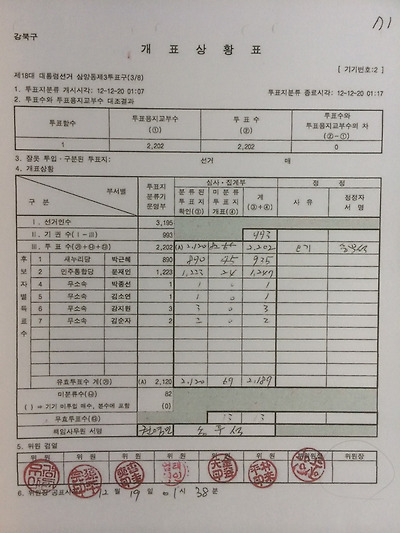 강북구
개 표 상 황 표
[ 기기번호:2 ]
제18대 대통령선거 삼양동제3투표구(3/8)
1. 투표지분류 개시시각: 12-12-20 01:07 투표지분류 종료시각: 12-12-20 01:17
2. 투표수와 투표용지교부수 대조결과
투표함수 투표용지교부수 (①) 투표수 (②) 투표수와 투표용지교부수의 차 (②-①)
1 2,202 2,202 0
3. 잘못 투입·구분된 투표지: 선거 매
4. 개표상황
구 분 부서별 투표지 분류기 운영부 심사·집계부 정 정
분류된 투표지 확인(③) 미분류 투표지 개표(④) 계 (③+④) 사 유 정정자 서 명
Ⅰ. 선거인수 3,195
Ⅱ. 기 권 수 (Ⅰ-Ⅲ) 993 993
Ⅲ. 투 표 수 2,202 (A) 2,120 2,202
후보자별득표수
1 새누리당 박근혜 890 890 45 935
2 민주통합당 문재인 1,223 1,223 24 1,247
3 무소속 박종선 1 1 0 1
4 무소속 김소연 1 1 0 1
6 무소속 강지원 3 3 0 3
7 무소속 김순자 2 2 0 2
유효투표수 계 (A) 2,120 2,120 69 2,189
미분류수 82
( ) ⇒ 기기 미투입 매수, 분수에 포함 (0)
무효투표수 13 13
책임사무원 서명
5. 위원 검열
위 원 위 원 위 원 위 원 위 원 위 원 위원장
6. 위원장 공표시각 12 월 19 일 01 시 38 분